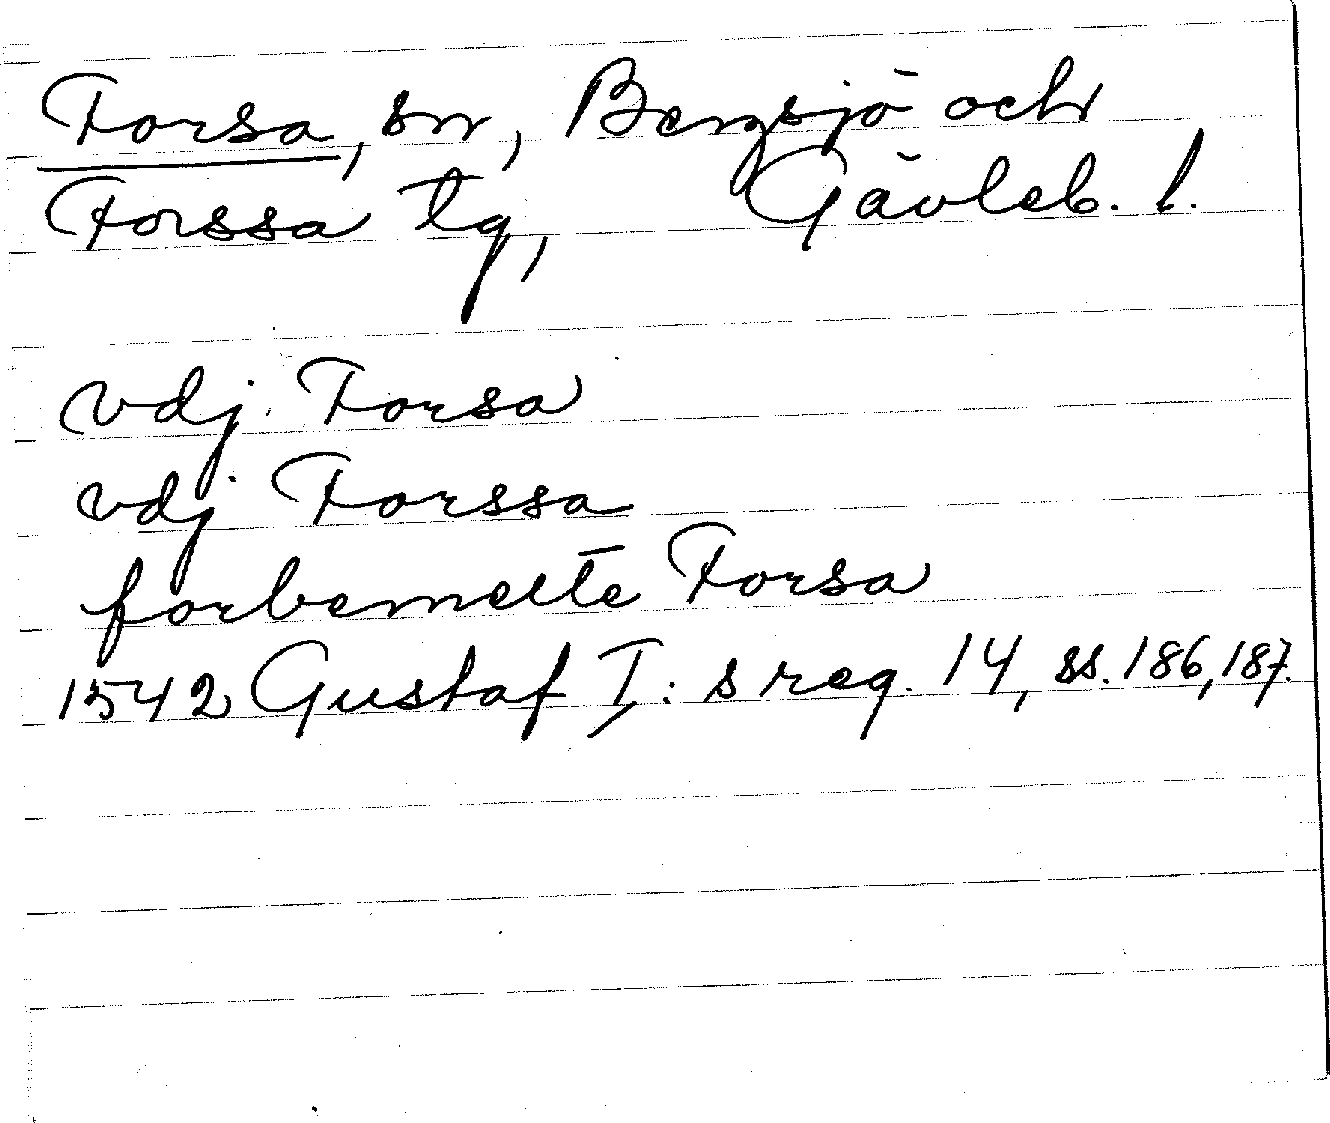 Forsa, sn, Bergsjö och
Forssa tg, Gävleb. l.
vdj Forsa
vdj Forssa
forbemelte Forsa
1542 Gustaf I: s reg. 14, ss. 186, 187.